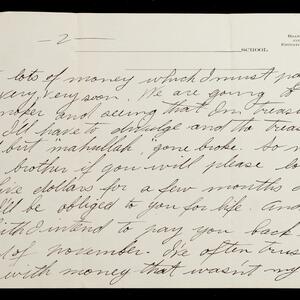 -2-
SCHOOL
lots of money which I must pa
very, very soon. We are going t
and seeing that I'm treas
I'll have to divulge and the trea
but "mahullah" gone broke. So m
brother if you will please lo
five dollars for a few months
I'll be obliged to you for life. and
with I intend to pay you back
of november. I've often trus
with money that wasn't my